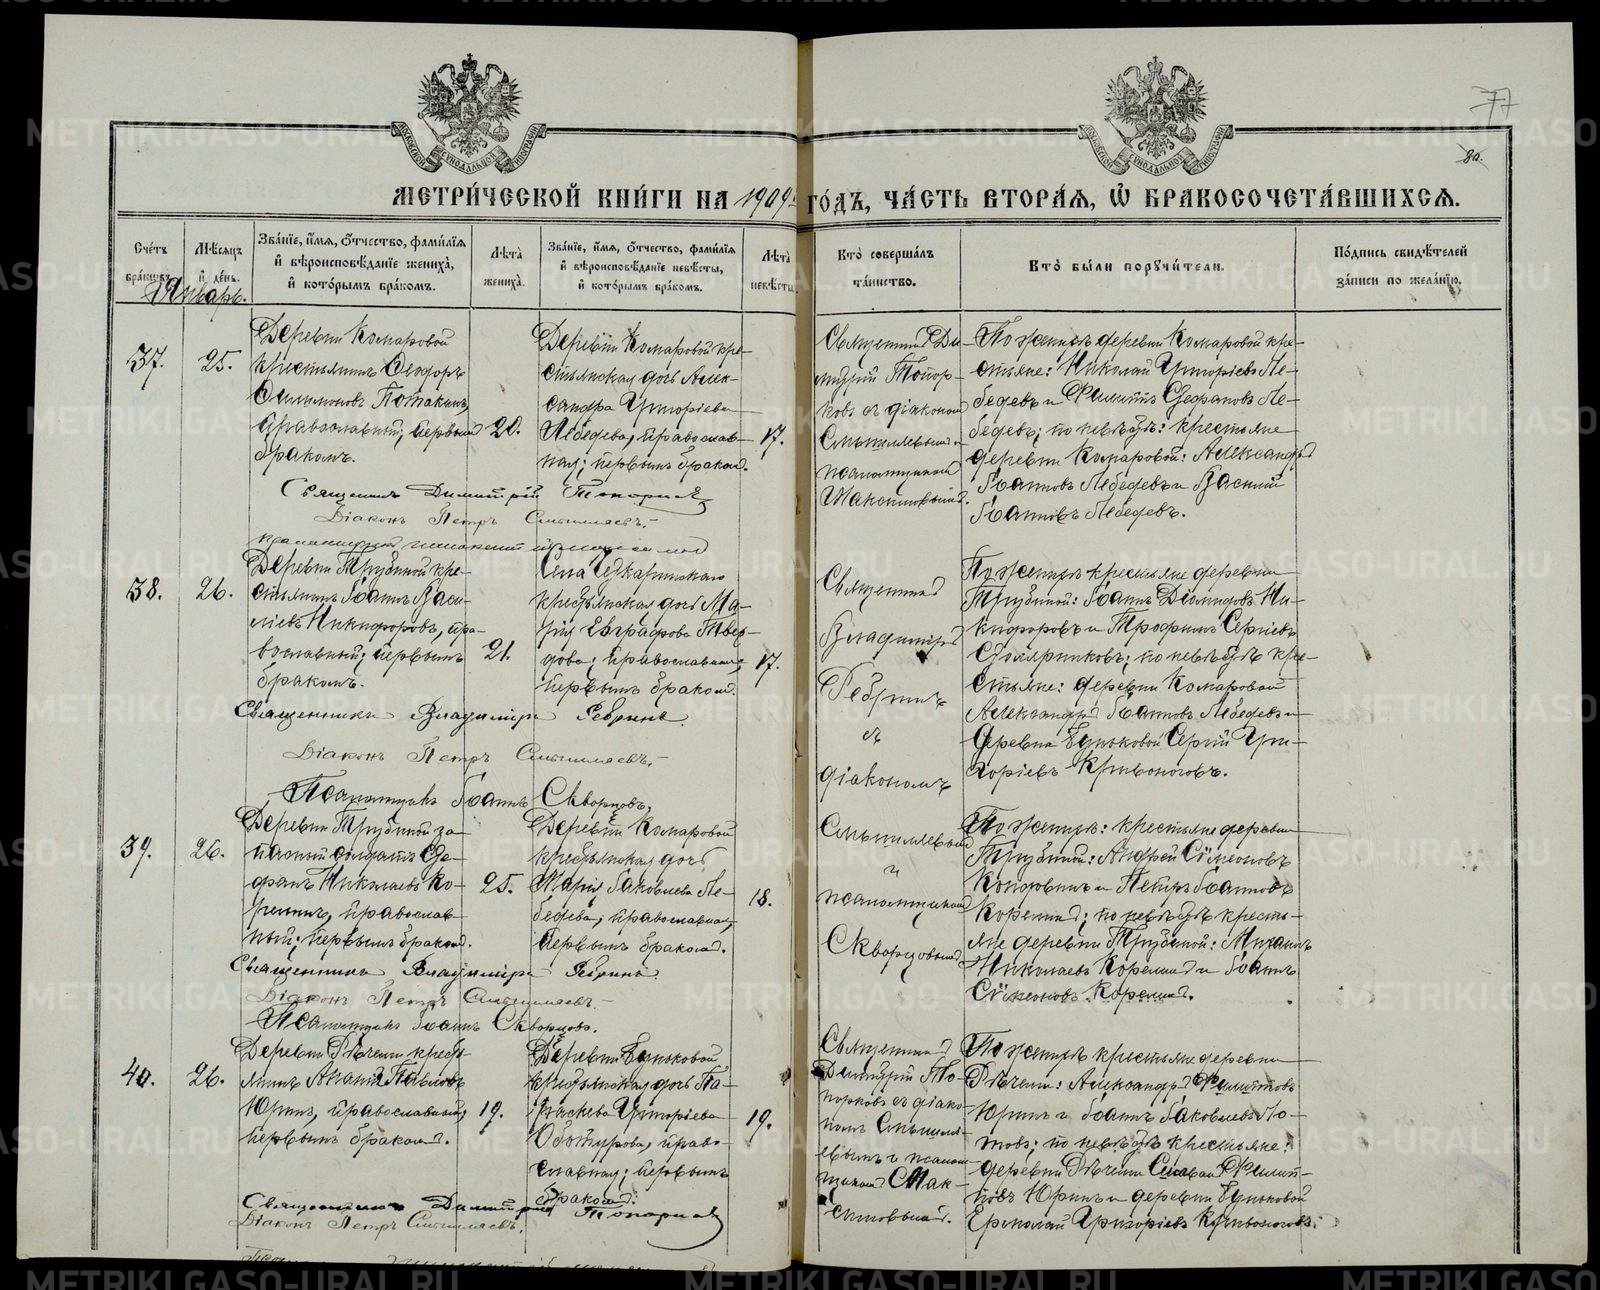 77
80.
МЕТРИ́ЧЕСКОЙ КНИ́ГИ НА 1909 ГО́ДЪ, ЧА́СТЬ ВТОРА́Я, Ѡ БРАКОСОЧЕТА́ВШИХСЯ.
Сче́тъ бра́ковъ.
Мѣ́сяцъ и де́нь.
Зва́ніе, и́мя, о́тчество, фами́лія и вѣроисповѣ́даніе жениха̀, и кото́рымъ бра́комъ.
Лѣта̀ жениха̀.
Зва́ніе, и́мя, о́тчество, фами́лія и вѣроисповѣ́даніе невѣ́сты, и кото́рымъ бра́комъ.
Лѣта̀ невѣ́сты
Кто̀ соверша́лъ та́инство.
Кто̀ бы́ли поручи́тели.
По́дпись свидѣ́телей за́писи по жела́нію.
Январь.
37.
25.
Деревни Комаровой
крестьянинъ Ѳеодоръ
Филимоновъ Потакинъ,
православный; первым
бракомъ.
20.
Деревни Комаровой кре-
стьянская дочь Алек-
сандра Григоріева
Лебедева, православ-
ная; первымъ бракомъ.
17.
Священник Ди-
митрій Топор-
ковъ съ діакономъ
Смышляевым и
псаломщикомъ
Максимовымъ.
По женихѣ деревни Комаровой кре-
стьяне: Николай Григоріевъ Ле-
бедевъ и Филиппъ Стефановъ Ле-
бедевъ; по невѣстѣ: крестьяне
деревни Комаровой: Александръ
Іоанновъ Лебедевъ и Василій
Іоанновъ Лебедевъ.
Священникъ Димитрій Топорков
Діаконъ Петръ Смышляевъ.
38.
26.
Деревни Трубиной кре-
стьянинъ Іоаннъ Васи-
ліевъ Никифоровъ, пра-
вославный; первымъ
бракомъ.
21.
Села Щкаринскаго
крестьянская дочь Ма-
рія Евграфова Твер-
дова; православная,
первымъ бракомъ.
17.
Священник
Владиміръ
Ребринъ
съ
діакономъ
Смышляевым
и
псаломщиком
Скворцовым
По женихѣ крестьяне деревни
Трубиной: Іоаннъ Діомидовъ Ни-
кифоровъ и Трофимъ Сергіевъ
Столярниковъ; по невѣстѣ кре-
стьяне: деревни Комаровой
Александръ Іоанновъ Лебедевъ и
деревни Буньковой Сергій Гри-
горіевъ Кривоноговъ.
Священникъ Владиміръ Ребринъ
Діаконъ Петръ Смышляевъ.
Псаломщикъ Іоаннъ Скворцовъ,
39.
26.
Деревни Трубиной за-
пасный солдатъ Сте-
фанъ Николаевъ Ко-
релинъ, православ-
ный; первымъ бракомъ.
25.
Деревни Комаровой
крестьянская дочь
Марія Іаковлева Ле-
бедева; православная,
первымъ бракомъ.
18.
По женихѣ: крестьяне деревни
Трубиной: Андрей Сѵмеоновъ
и Петръ Іоанновъ
Корелинъ; по невѣстѣ кресть-
яне деревни Трубиной: Михаилъ
Николаевъ Корелинъ и Іоаннъ
Сѵмеоновъ Корелинъ.
Священникъ Владиміръ Ребринъ
Діаконъ Петръ Смышляевъ
Псаломщикъ Іоаннъ Скворцовъ.
40.
26.
Деревни Рѣчени кресть-
янинъ Ананій Павловъ
Юринъ, православный;
первымъ бракомъ.
19.
Деревни Буньковой
крестьянская дочь Па-
раскева Григоріева
Обатурова, право-
славная; первымъ
бракомъ.
19.
Священникъ
Димитрій То-
порковъ съ діако-
номъ Смышля-
евымъ и псалом-
щикомъ Мак-
симовымъ.
По женихѣ крестьяне деревни
Рѣчени: Александръ Филипповъ
Юринъ и Іоаннъ Іаковлевъ
; по невѣстѣ крестьяне:
деревни Рѣчени Филип-
повъ Юринъ и деревни Буньковой
Ермолай Григоріевъ Кривоноговъ.
Священникъ Димитрій Топорков
Діаконъ Петръ Смышляевъ.
METRIKI.GASO-URAL.RU